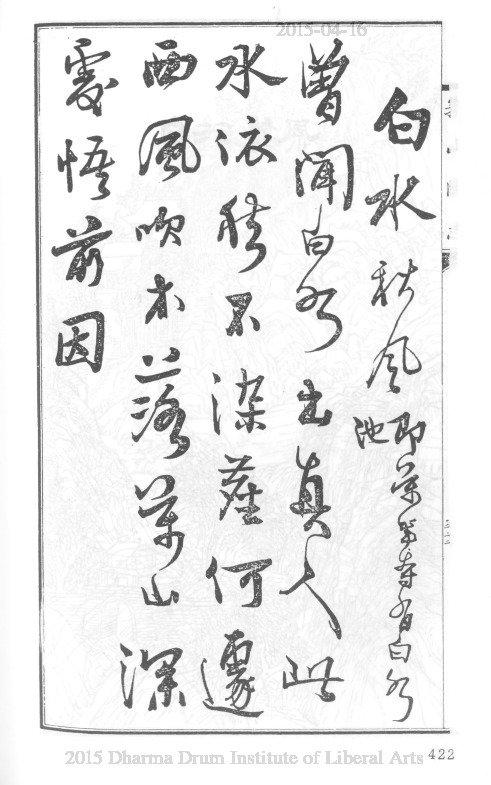 2015-04-16
白水秋風 即萬年寺有白水
池
曾聞白水出真人此
水依稀不染塵何處
西風吹木落萬山深
處悟前因
2015 Dharma Drum Institute of Liberal Arts
422